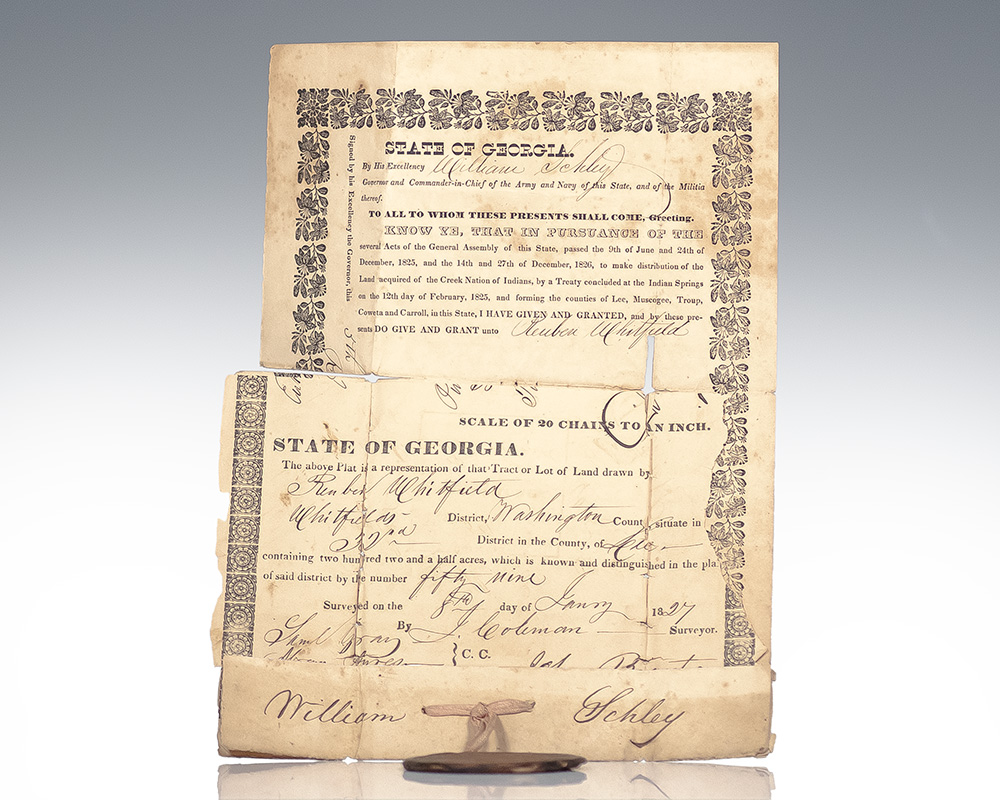 STATE OF GEORGIA.
By His Excellency William Schley
Governor and Commander-in-Chief of the Army and Navy of this State, and of the Militia
thereof.
TO ALL TO WHOM THESE PRESENTS SHALL COME, Greeting.
KNOW YE, THAT IN PURSUANCE OF THE
several Acts of the General Assembly of this State, passed the 9th of June and 24th of
December, 1825, and the 14th and 27th of December, 1826, to make distribution of the
Land acquired of the Creek Nation of Indians, by a Treaty concluded at the Indian Springs
on the 12th day of February, 1825, and forming the counties of Lee, Muscogee, Troup,
Coweta and Carroll, in this State, I HAVE GIVEN AND GRANTED, and by these pre-
sents DO GIVE AND GRANT unto Reuben Whitfield
Signed by his Excellency the Governor, this 5th
SCALE OF 20 CHAINS TO AN INCH.
STATE OF GEORGIA.
The above Plat is a representation of that Tract or Lot of Land drawn by
Reuben Whitfield
Whitfields District, Washington County situate in
32nd District in the County, of Lee
containing two hundred two and a half acres, which is known and distinguished in the pla
of said district by the number fifty nine
Surveyed on the 8th day of Janry 1827
By J. Coleman Surveyor.
Saml Gray
C. C.
William Schley